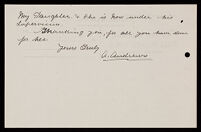 My Daughter & she is now under his
Supervision.
Thanking you for all you have done
for her
Yours Truly
A. Andrews